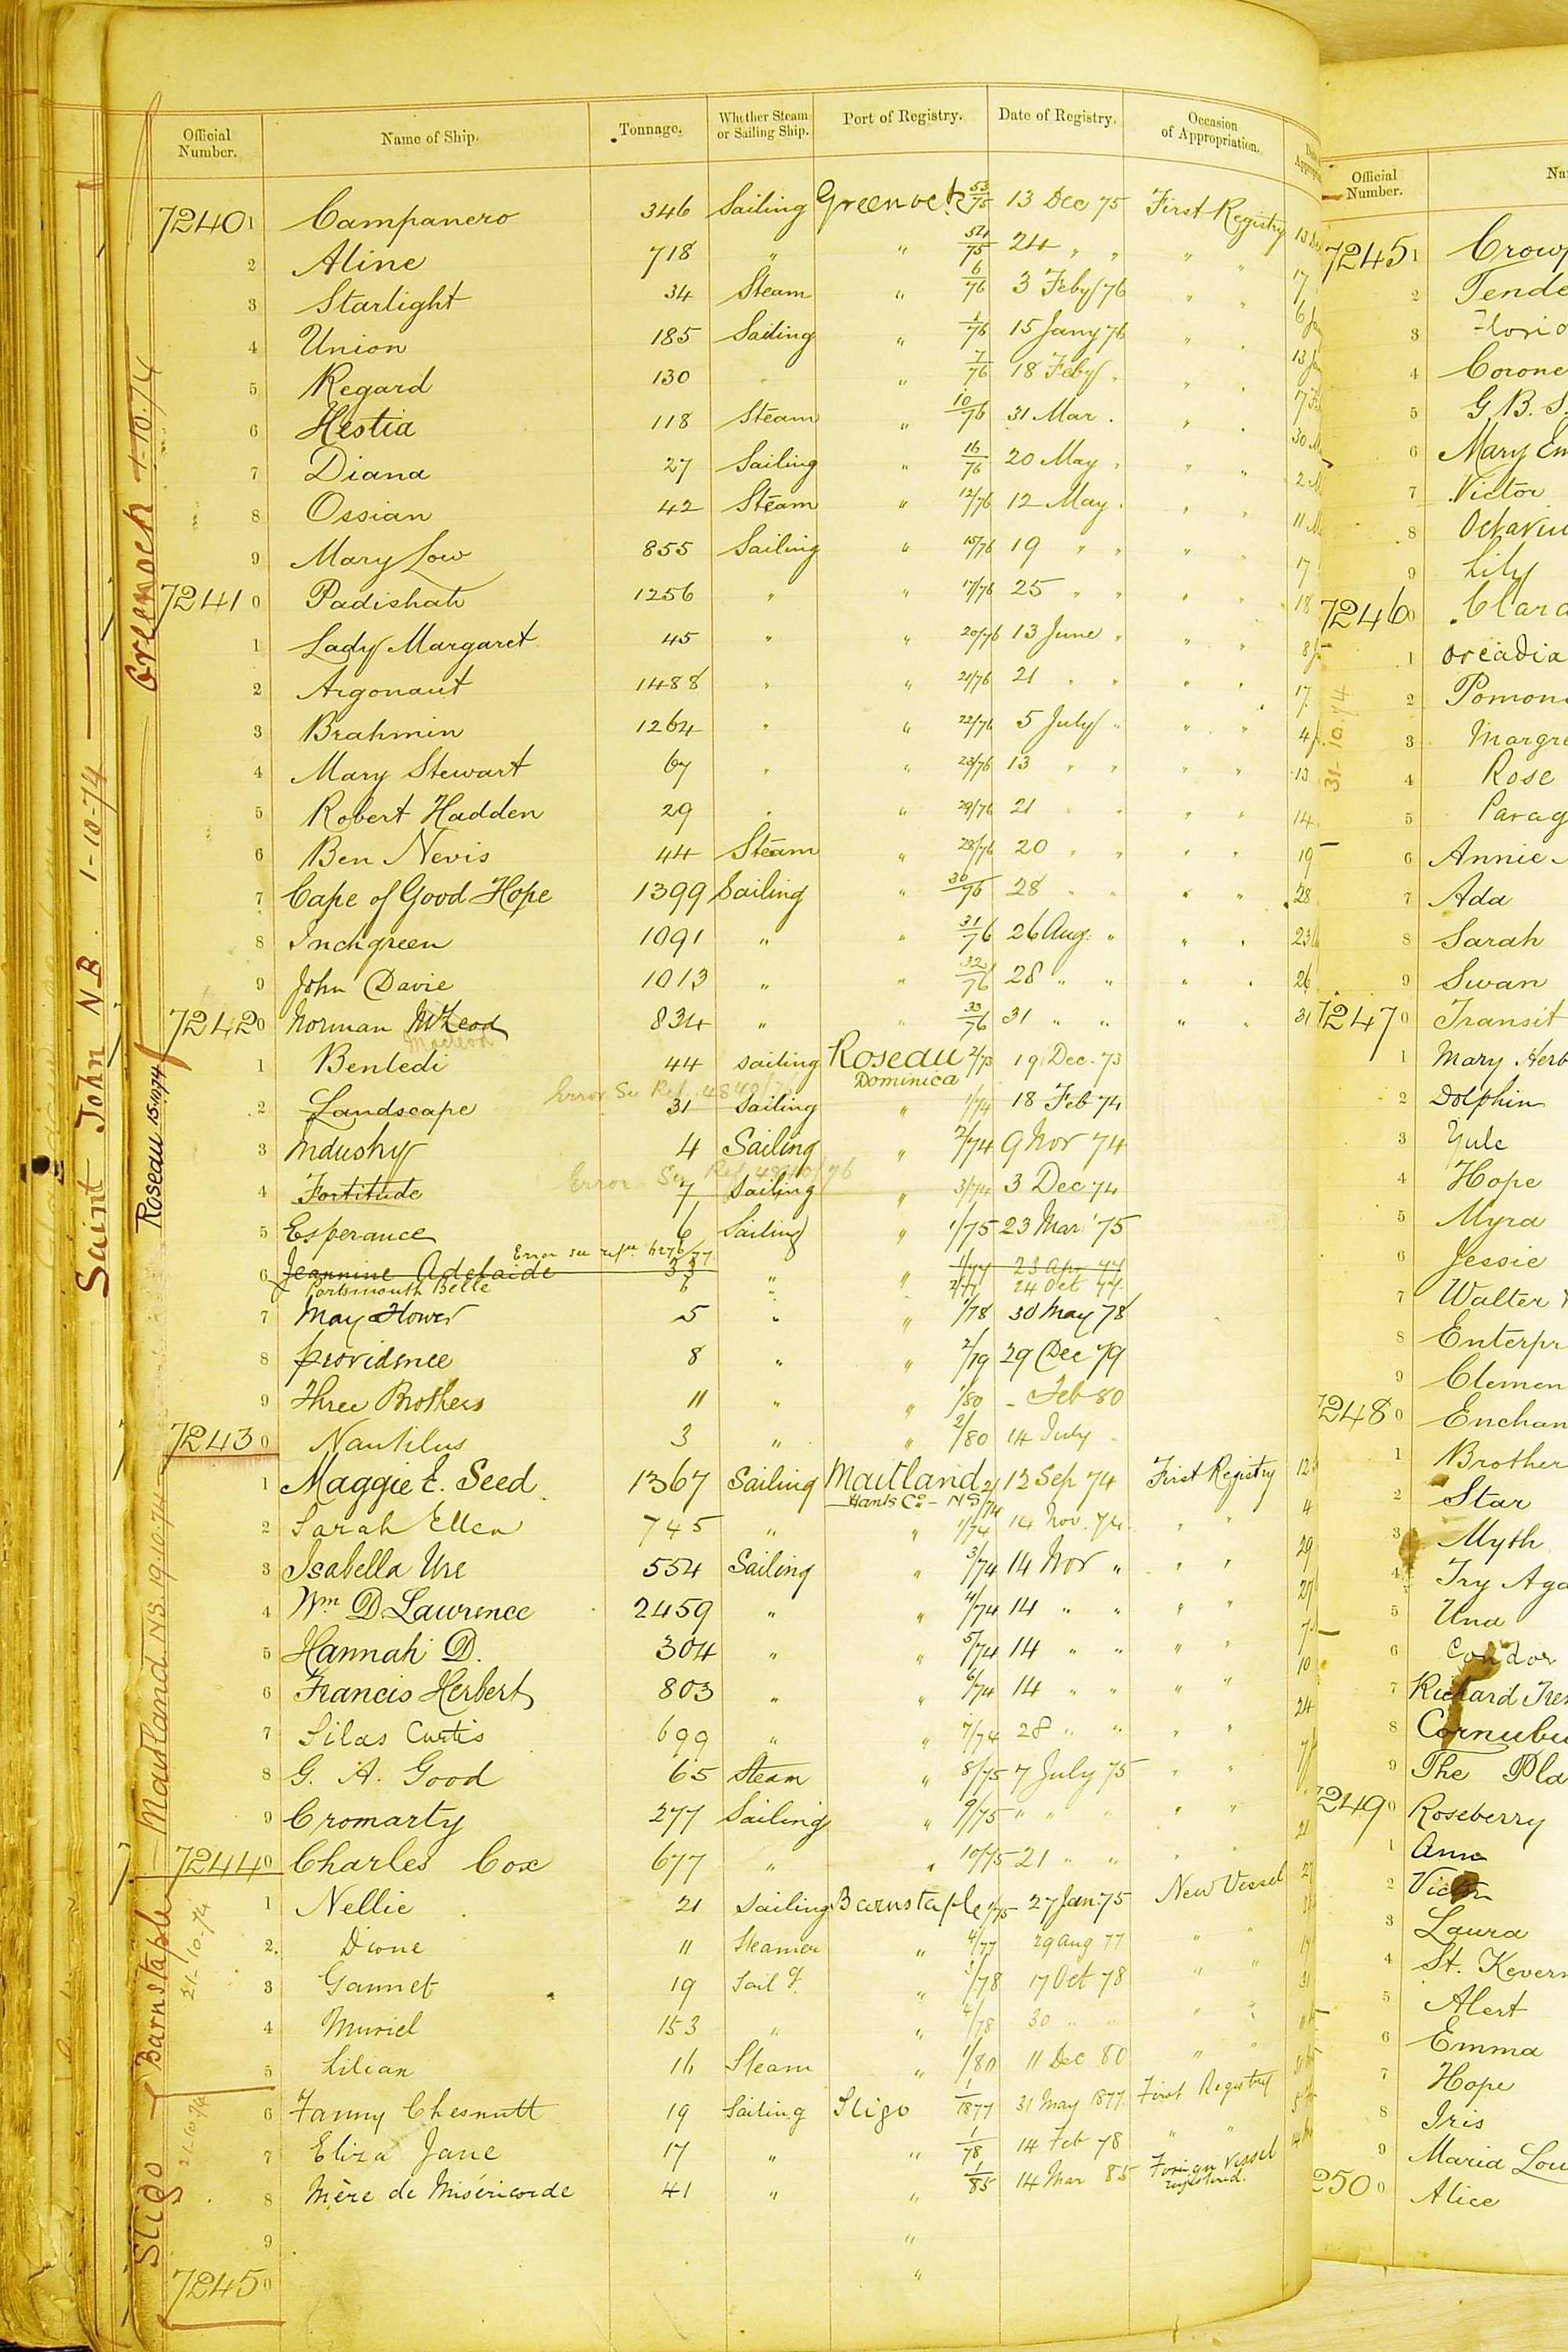 Official Number. Name of Ship. Tonnage. Whether Steam or Sailing Ship. Port of Registry. Date of Registry. Occasion of Appropriation.
72401 Campanero 346 Sailing Greenock 53/75 13 Dec 75 First Registry
2 Aline 718 " " 54/75 24 " " " "
3 Starlight 34 Steam " 6/76 3 Feby 76 " "
4 Union 185 Sailing " 1/76 15 Jany 76 " "
5 Regard 130 " " 7/76 18 Feby " " "
6 Hestia 118 Steam " 10/76 31 Mar " " "
7 Diana 27 Sailing " 16/76 20 May " " "
8 Ossian 42 Steam " 12/76 12 May " " "
9 Mary Low 855 Sailing " 15/76 19 " " " "
72410 Padishah 1256 " " 17/76 25 " " " "
1 Lady Margaret 45 " " 20/76 13 June " " "
2 Argonaut 1488 " " 21/76 21 " " " "
3 Brahmin 1264 " " 22/76 5 July " " "
4 Mary Stewart 67 " " 23/76 13 " " " "
5 Robert Hadden 29 " " 29/76 21 " " " "
6 Ben Nevis 44 Steam " 28/76 20 " " " "
7 Cape of Good Hope 1399 Sailing " 30/76 28 " " " "
8 Inchgreen 1091 " " 31/76 26 Aug. " " "
9 John Davie 1013 " " 32/76 28 " " " "
72420 Norman McLeod 834 " " 33/76 31 " " " "
Macleod
1 Benledi 44 Sailing Roseau 2/73 19 Dec. 73
Dominica
Error See Ref. 4840/76
2 Landscape 31 Sailing " 1/74 18 Feb 74
3 Industry 4 Sailing " 2/74 9 Nov 74
Error See Ref. 4840/76
4 Fortitude 7 Sailing " 3/74 3 Dec 74
5 Esperance 6 Sailing " 1/75 23 Mar. '75
Error see 6276/77
6 Jeannine Adelaide 33 " " 1/77 23 Apr 77
Portsmouth Belle 6 " 2/77 24 Oct 77
7 May Flower 5 " " 1/78 30 May 78
8 Providence 8 " " 2/79 29 Dec 79
9 Three Brothers 11 " " 1/80 - Feb 80
72430 Nautilus 3 " " 2/80 14 July "
1 Maggie E. Seed 1367 Sailing Maitland 2/74 12 Sep 74 First Registry
Hants Co - NS
2 Sarah Ellen 745 " " 1/74 14 Nov. 74 " "
3 Isabella Ure 554 Sailing " 3/74 14 Nov " " "
4 Wm D Lawrence 2459 " " 4/74 14 " " " "
5 Hannah D. 304 " " 5/74 14 " " " "
6 Francis Herbert 803 " " 6/74 14 " " " "
7 Silas Curtis 699 " " 7/74 28 " " " "
8 G. A. Good 65 Steam " 8/75 7 July 75 " "
9 Cromarty 277 Sailing " 9/75 " " " " "
72440 Charles Cox 677 " " 10/75 21 " " " "
1 Nellie 21 Sailing Barnstaple 1/75 27 Jan. 75 New Vessel
2 Dione 11 Steamer " 4/77 29 Aug 77 " "
3 Gannet 19 Sailg " 3/78 17 Oct 78 " "
4 Muriel 153 " " 4/78 30 " " " "
5 Lilian 16 Steam " 1/80 11 Dec 80 " "
6 Fanny Chesnutt 19 Sailing Sligo 1/1877 31 May 1877 First Registry
7 Eliza Jane 17 " " 1/78 14 Feb 78 " "
8 Mère de Miséricorde 41 " " 1/85 14 Mar 85 Foreign Vessel registered.
9 "
72450 "
Saint John N.B. 1-10-74
Greenock 1-10-74
Roseau 15.10.74
Maitland NS. 19.10.74
Barnstaple
21-10-74
Sligo
21.10.74
Official Number.
72451
2 Tende
3
4 Corone
5 G. B. S.
6 Mary Em
7 Victor
8 Octaviu
9 Lily
72460 Clara
1 Orcadia
2 Pomon
3 Margre
4 Rose
5 Parag
6 Annie
7 Ada
8 Sarah
9 Swan
72470 Transit
1 Mary Herb
2 Dolphin
3 Yule
4 Hope
5 Myra
6 Jessie
7 Walter
8 Enterpr
9 Clemen
72480 Enchan
1 Brother
2 Star
3 Myth
4 Try Aga
5 Una
6 Condor
7 Richard Tre
8 Cornubi
9 The Pla
72490 Roseberry
1 Ann
2 Victor
3 Laura
4 St. Kevern
5 Alert
6 Emma
7 Hope
8 Iris
9 Maria Lou
2500 Alice
31-10-74